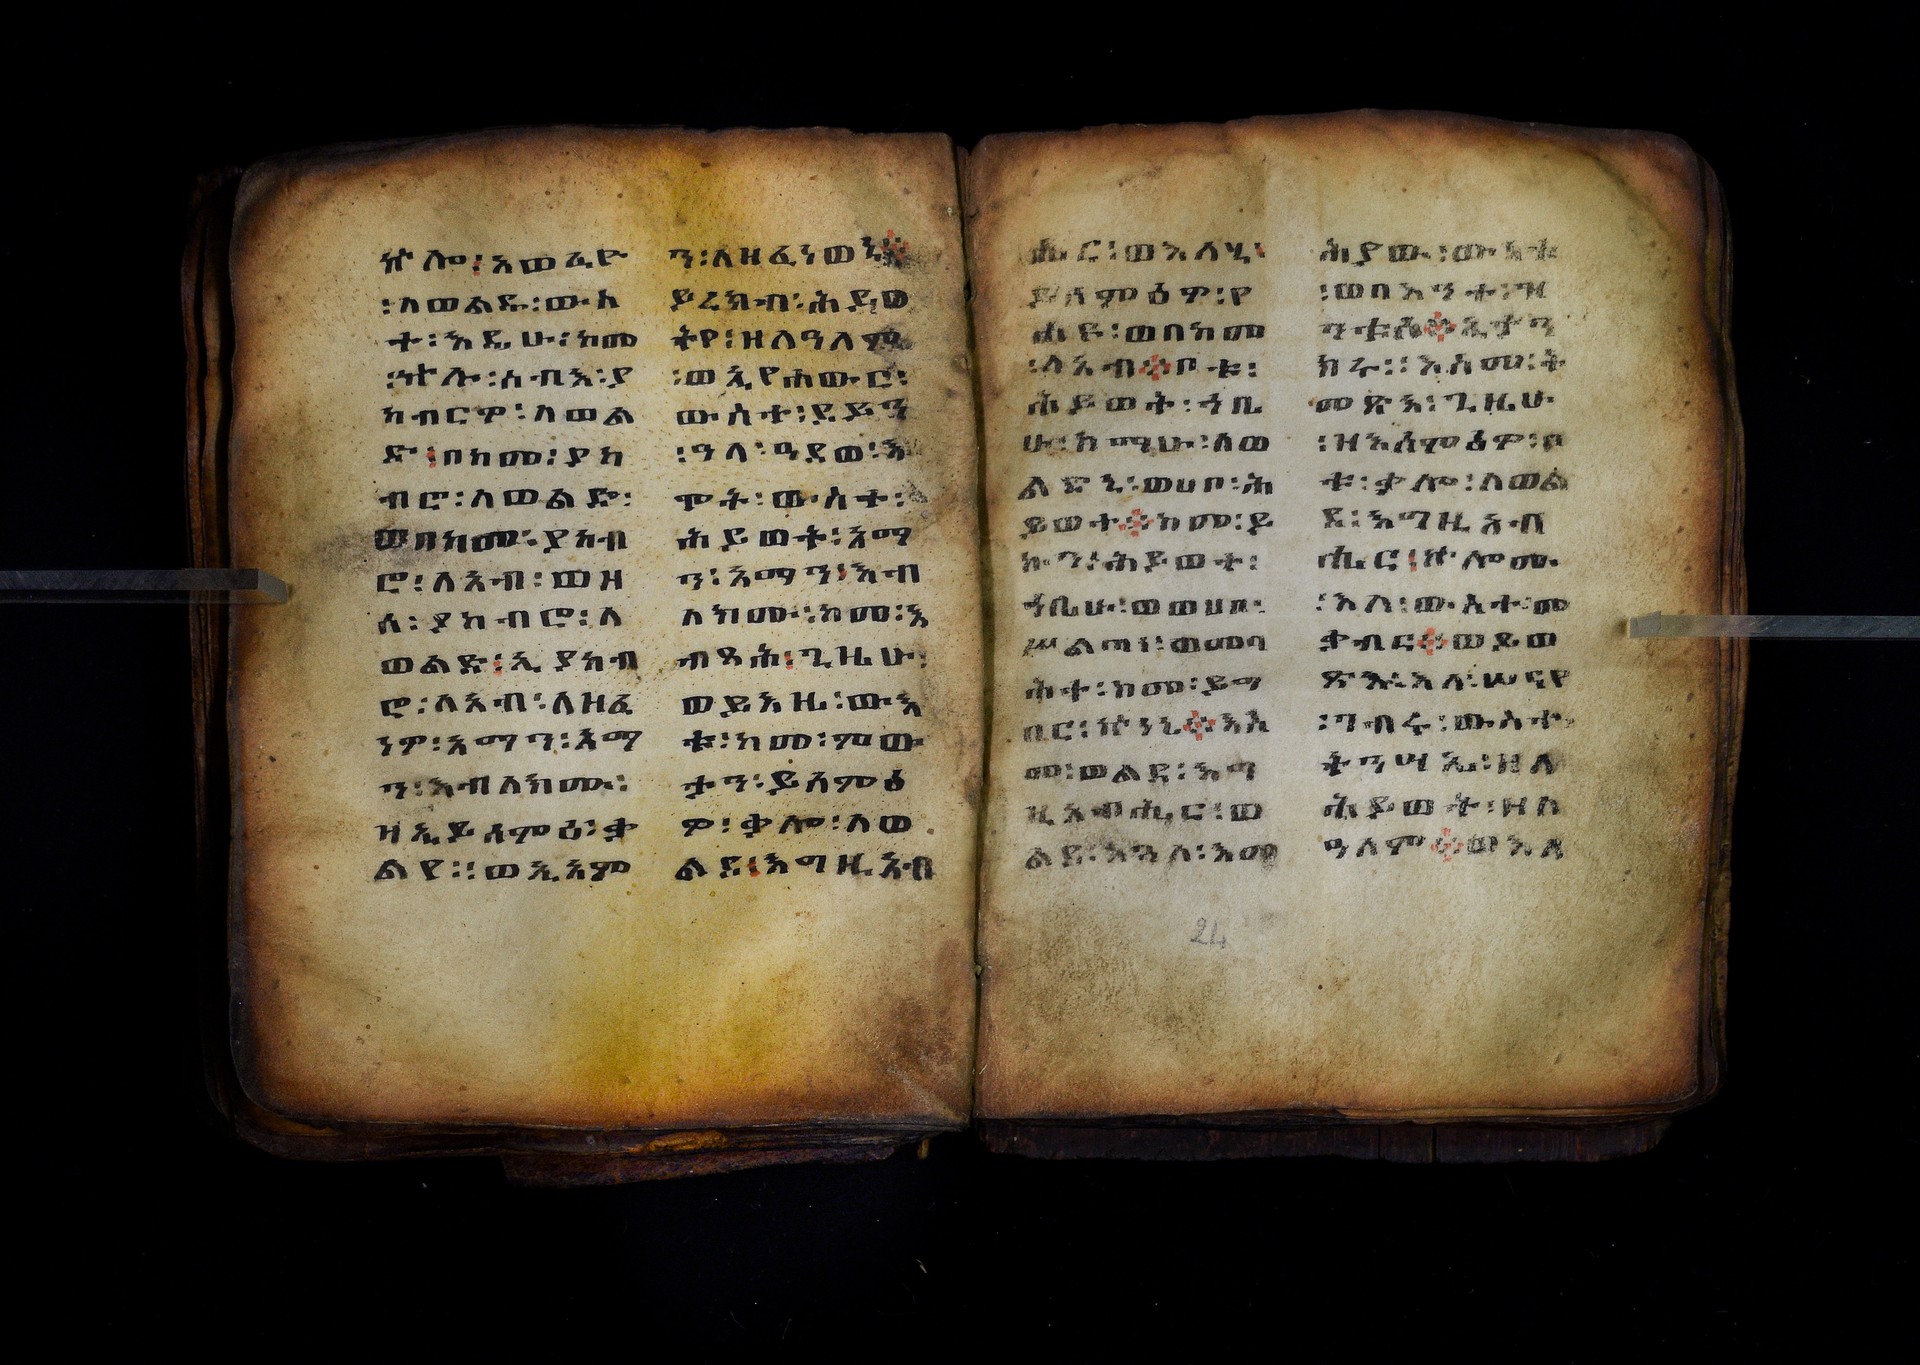 ኵሎ፡አወፈዮ
፡ለወልዱ፡ውስ
ተ፡እዴሁ፡ከመ
፡ኵሉ፡ሰብእ፡ያ
ከብርዎ፡ለወል
ድ፡በከመ፡ያከ
ብሮ፡ለወልድ፡
ወበከመ፡ያከብ
ሮ፡ለአብ፡ወዘ
ሰ፡ያከብሮ፡ለ
ወልድ፡ኢያከብ
ሮ፡ለአብ፡ለዘፈ
ነዎ፡አማን፡አማ
ን፡እብለክሙ፡
ዘኢይሰምዕ፡ቃ
ልየ፡፡ወኢአም
ን፡ለዘፈነወኒ፨
ይረክብ፡ሕይወ
ትየ፡ዘለዓለም
፡ወኢየሐውር፡
ውስተ፡ደይን
፡ዓላ፡ዓደወ፡እ
ሞት፡ውስተ፡
ሕይወት፡አማ
ን፡አማን፡እብ
ለክሙ፡ከመ፡ይ
ብጻሕ፡ጊዜሁ፡
ወይእዜ፡ውእ
ቱ፡ከመ፡ምው
ታን፡ይሰምዕ
ዎ፡ቃሎ፡ለወ
ልደ፡እግዚአብ
ሔር፡ወእለሂ፡
ይሰምዕዎ፡የ
ሐይ፡ወበከመ
፡ለአብ፨ቦቱ፡
ሕይወት፡ኀቤ
ሁ፡ከማሁ፡ለወ
ልድኒ፡ወሀቦ፡ሕ
ይወተ፨ከመ፡ይ
ኩን፡ሕይወት፡
ኀቤሁ፡ወወሀቦ፡
ሥልጣነ፡ወመባ
ሕተ፡ከመ፡ይግ
በር፡ኵነኔ፨እስ
መ፡ወልደ፡እግ
ዚአብሔር፡ወ
ልደ፡እጓለ፡እመ
ሕያው፡ውእቱ
፡ወበእንተ፡ዝ
ንቱሰ፨ኢታን
ክሩ፡፡እስመ፡ት
መጽእ፡ጊዜሁ
፡ዝእሰምዕዎ፡ቦ
ቱ፡ቃሎ፡ለወል
ደ፡እግዚአብ
ሔር፡ኵሎሙ
፡እለ፡ውስተ፡መ
ቃብር፨ወይወ
ጽኡ፡እለ፡ሠናየ
፡ገብሩ፡ውስተ፡
ትንሣኤ፡ዘለ
ሕይወት፡ዘለ
ዓለም፨ወእለ
24